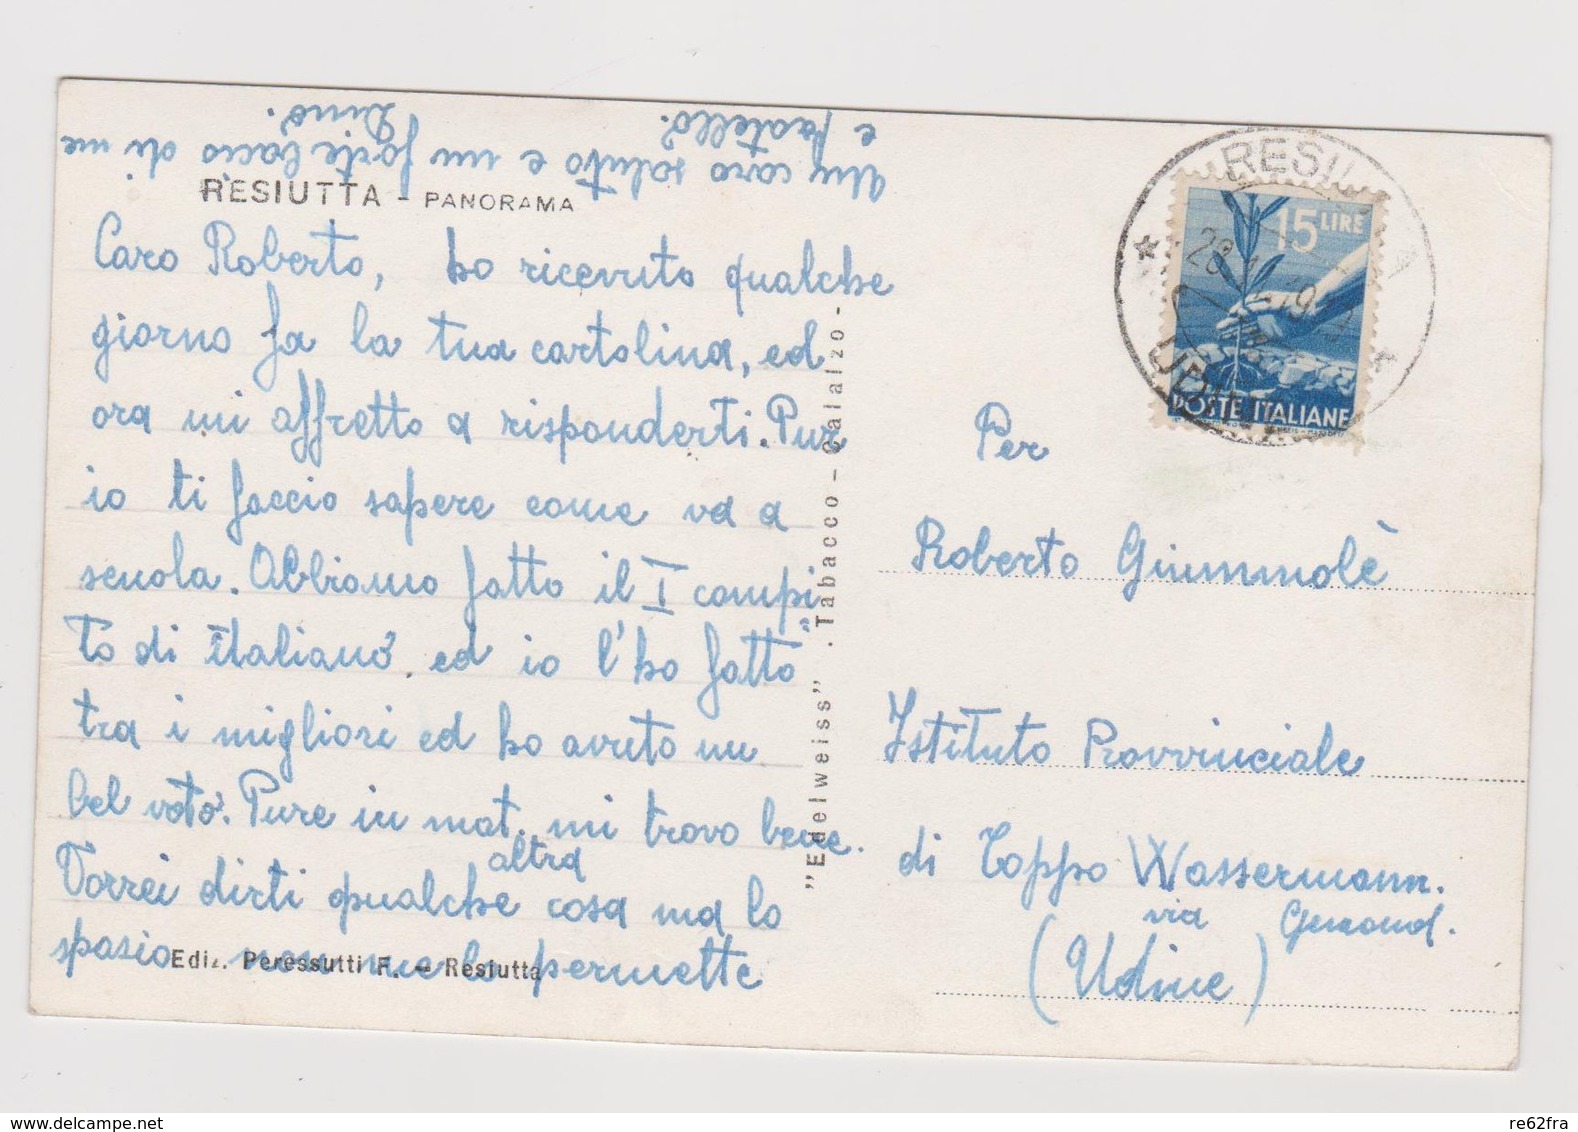 RESIUTTA - PANORAMA
Caro Roberto, ho ricevuto qualche
giorno fa la tua cartolina, ed
ora mi affretto a risponderti. Pur
io ti faccio sapere come va a
scuola. Abbiamo fatto il I compi
to di italiano, ed io l'ho fatto
tra i migliori ed ho avuto un
bel voto. Pure in mat. mi trovo bene.
altra
Vorrei dirti qualche cosa ma lo
spazio non me lo permette
Un caro saluto e un forte bacio di me
e fratello.
Dino.
Ediz. Peressutti F. - Resiutta
"Edelweiss" - Tabacco - Calalzo -
15 LIRE
POSTE ITALIANE
RESIU
UDI
Per
Roberto Giummolè
Istituto Provvinciale
di Toppo Wassermann.
via Gemond.
(Udine)
delcampe.net
re62fra